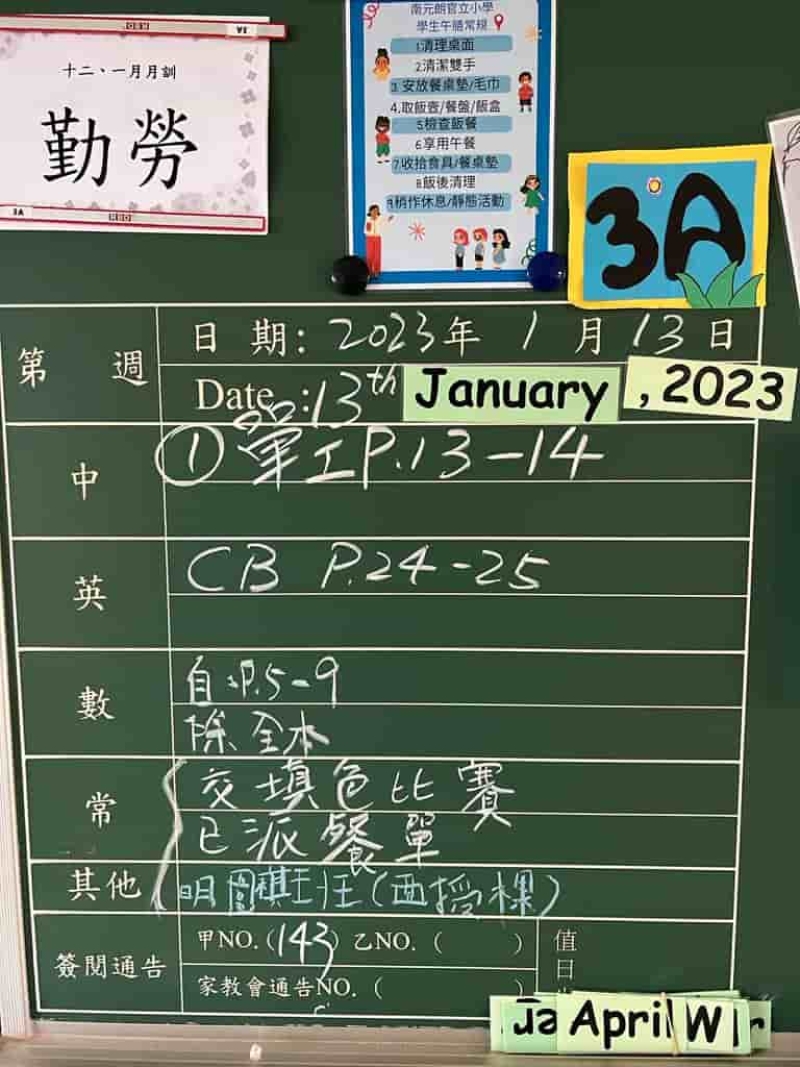 十二、一月月訓
勤勞
3A
南元朗官立小學
學生午膳常規
1.清理桌面
2.清潔雙手
3.安放餐桌墊/毛巾
4.取飯壺/餐盤/飯盒
5.檢查飯餐
6.享用午餐
7.收拾食具/餐桌墊
8.飯後清理
9.稍作休息/靜態活動
3A
第 週
日 期: 2023年 1 月 13 日
Date :13th January , 2023
中
① 單工P.13-14
英
CB P.24-25
數
自P.5-9
除全本
常
交填色比賽
已派餐單
其他
明圍棋班(面授課)
簽閱通告
甲NO.(143) 乙NO.( )
家教會通告NO.(
值日
Ja April W r